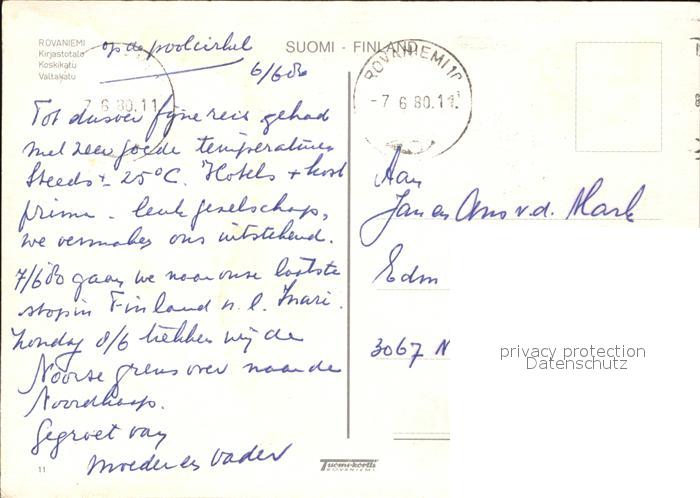 ROVANIEMI
Kirjastotalo
Koskikatu
Valtakatu
op de poolcirkel
SUOMI - FINLAND
6/6 80
ROVANIEMI 10
-7 6 80.11
7 6 80.11
Tot dusver fijne reis gehad
met zeer goede temperaturen
Steeds ± 25°C. Hotels + kost
prima - leuk gezelschap,
we vermaken ons uitstekend.
7/6 80 gaan we naar onze laatste
stop in Finland n.l. Inari.
Zondag 8/6 trekken wij de
Noorse grens over naar de
Noordkaap.
Gegroet van
moeder en vader
Aan
Jan en Ans v.d. Mark
Edm
3067 N
privacy protection
Datenschutz
11
Tuomi-kortti
ROVANIEMI